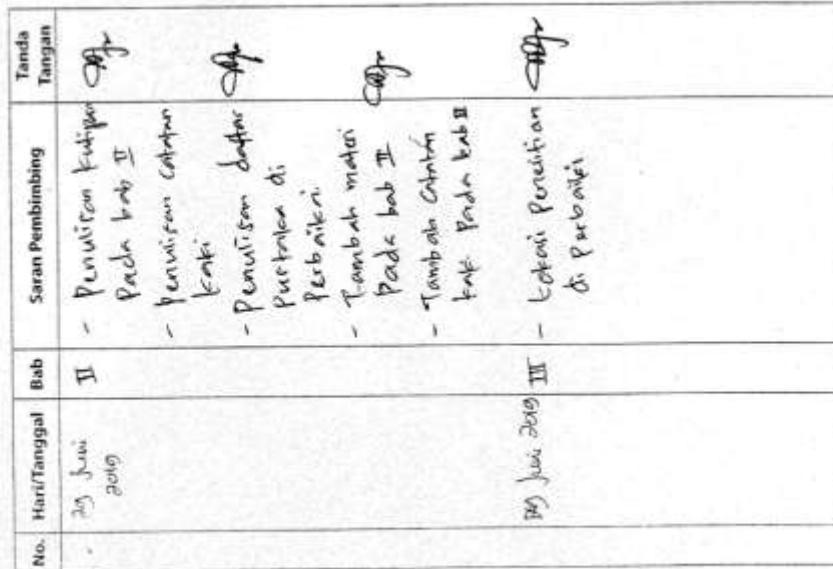 No. Hari/Tanggal Bab Saran Pembimbing Tanda Tangan
29 Juni 2019 II
- Penulisan kutipan
Pada bab II
- penulisan catatan
kaki
- Penulisan daftar
Pustaka di
Perbaikai.
- Tambah materi
Pada bab II
- Tambah Catatan
kaki Pada bab II
29 Juni 2019 III
- Lokasi Penelitian
di Perbaiki